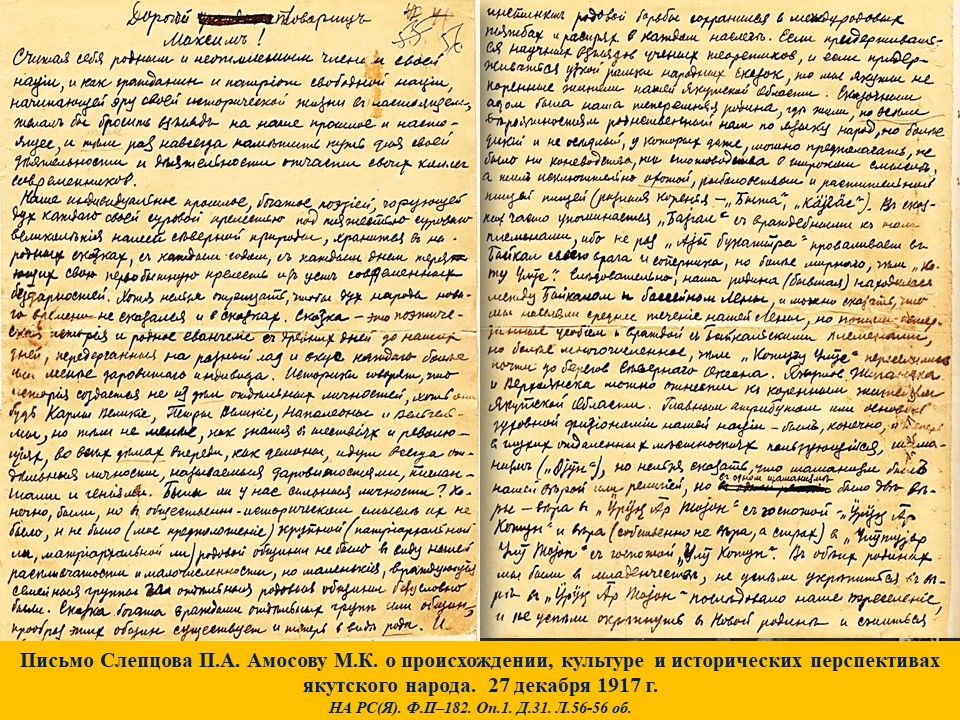 Дорогой Товарищъ
Максимъ!
Считая себя роднымъ и неотъемлемымъ членомъ своей
націи, и какъ гражданин и патріотъ свободной націи,
начинающей эру своей исторической жизни въ настоящемъ,
желалъ бы бросить взглядъ на наше прошлое и насто-
ящее, и тѣмъ раз навсегда намѣтить путь для своей
дѣятельности и дѣятельности отчасти своихъ коллег
современников.
Наше индивидуальное прошлое, богатое поэзіей, чарующей
дух каждаго своей суровой прелестью под
великолѣпія нашей сѣверной природы, хранится въ на-
родных сказках, съ каждым годом, съ каждым днем теря-
ющих свою первобытную прелесть въ устах современных
бездарностей. Хотя нельзя отрицать, чтобы дух народа ново-
го времени не сказался и въ сказках. Сказка – это поэтиче-
ская исторія и родное евангеліе съ древних дней до наших
дней, передѣланная на разный лад и вкус каждаго болѣе
или менѣе даровитаго индивида. Историки говорят, что
исторія создается не из дѣл отдѣльных личностей, хотя они
будь Карлы Великіе, Петры Великіе, Наполеоны и Вильгель-
мы, но тѣм не менѣе, как знамя в шествіях и револю-
ціях, во всѣх дѣлах впереди, как демоны, идут всегда от-
дѣльныя личности, называемыя даровитостями, талан-
тами и геніями. Были ли у нас сильныя личности? Ко-
нечно, были, но в общественно-историческом смыслѣ их не
было, и не было (мое предположеніе) крупной (патріархальной
ли, матріархальной ли) родовой общины не было в виду нашей
распыленности и малочисленности, но маленькія, враждующія
семейныя группы или отдѣльныя родовыя общины безусловно
были. Сказка богата враждами отдѣльных групп или общин,
прообраз этих общин существует и теперь в видѣ рода. И
инстинкт родовой борьбы сохранился в междуродовых
тяжбах и распрях в каждом наслегѣ. Если придерживать-
ся научных взглядов ученых теоретиков, и если придер-
живаться узкой рамки народных сказок, то мы якуты не
коренные жители нашей Якутской Области. Сказочным
адом была наша теперешняя родина, гдѣ жил, по всѣм
вѣроятностям родственный нам по языку народ, но болѣе
дикій и не осѣдлый, у которых даже, можно предполагать, не
было ни коневодства, ни скотоводства в широком смыслѣ,
а жил исключительно охотой, рыболовством и растительной
пищей
часто упоминается „Байғал" съ враждебными к нам
племенами, ибо не раз „Айы букатыра" проваливаем въ
Байкал своего врага и соперника, но болѣе мирнаго, чѣм
Слѣдовательно, наша родина (бывшая) находилась
между Байкалом и бассейном Лены, и можно сказать, что
мы населяли среднее теченіе нашей Лены, но
усобиц и враждой съ Байкальскими племенами,
но болѣе многочисленное, чѣм
почти до берегов Сѣвернаго Океана. Якутов Жиганска
и Верхоянска можно отнести къ кореннымъ жителям
Якутской Области. Главным атрибутом или основой
духовной физіономіи нашей націи – был, конечно, и теперь
в глухих отдаленных мѣстностях пользующійся, шама-
низм но нельзя сказать, что шаманизм был
нашей вѣрой или религіей, но в одном шаманизмѣ было двѣ вѣ-
ры – вѣра в „Үрүҥ Ар Тојон" съ госпожой „Үрүҥ Ар
Хотун" и вѣра (собственно не вѣра, а страх) в
Улу Тојон" съ госпожой „Улу Хотун". Въ обѣих родинах
мы были в младенчествѣ, не успѣли укрѣпиться въ вѣ-
рѣ въ „Үрүҥ Ар Тојон" послѣдовало наше переселеніе,
и не успѣли окрѣпнуть в новой родинѣ и сжиться
Письмо Слепцова П.А. Амосову М.К. о происхождении, культуре и исторических перспективах
якутского народа. 27 декабря 1917 г.
НА РС(Я). Ф.П–182. Оп.1. Д.31. Л.56-56 об.